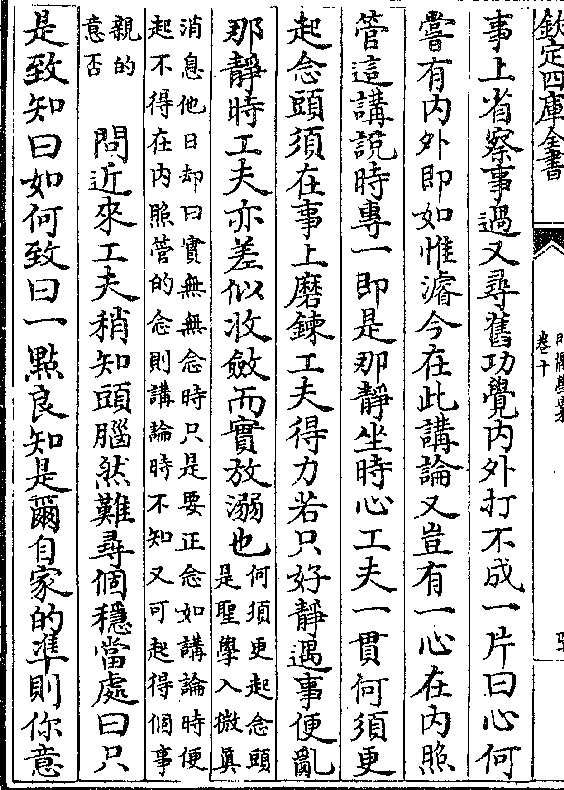 欽定四庫全書
卷十
事上省察事過又尋舊功覺内外打不成一片曰心何
嘗有内外即如惟濬今在此講論又豈有一心在内照
管這講說時專一即是那靜坐時心工夫一貫何須更
起念頭須在事上磨鍊工夫得力若只好靜遇事便亂
那靜時工夫亦差似收斂而實放溺也何須更起念頭
是聖學入微真
消息他日却曰實無無念時只是要正念如講論時便
起不得在内照管的念則講論時不知又可起得個事
親的
意否
問近來工夫稍知頭腦然難尋個穩當處曰只
是致知曰如何致曰一點良知是爾自家的準則你意